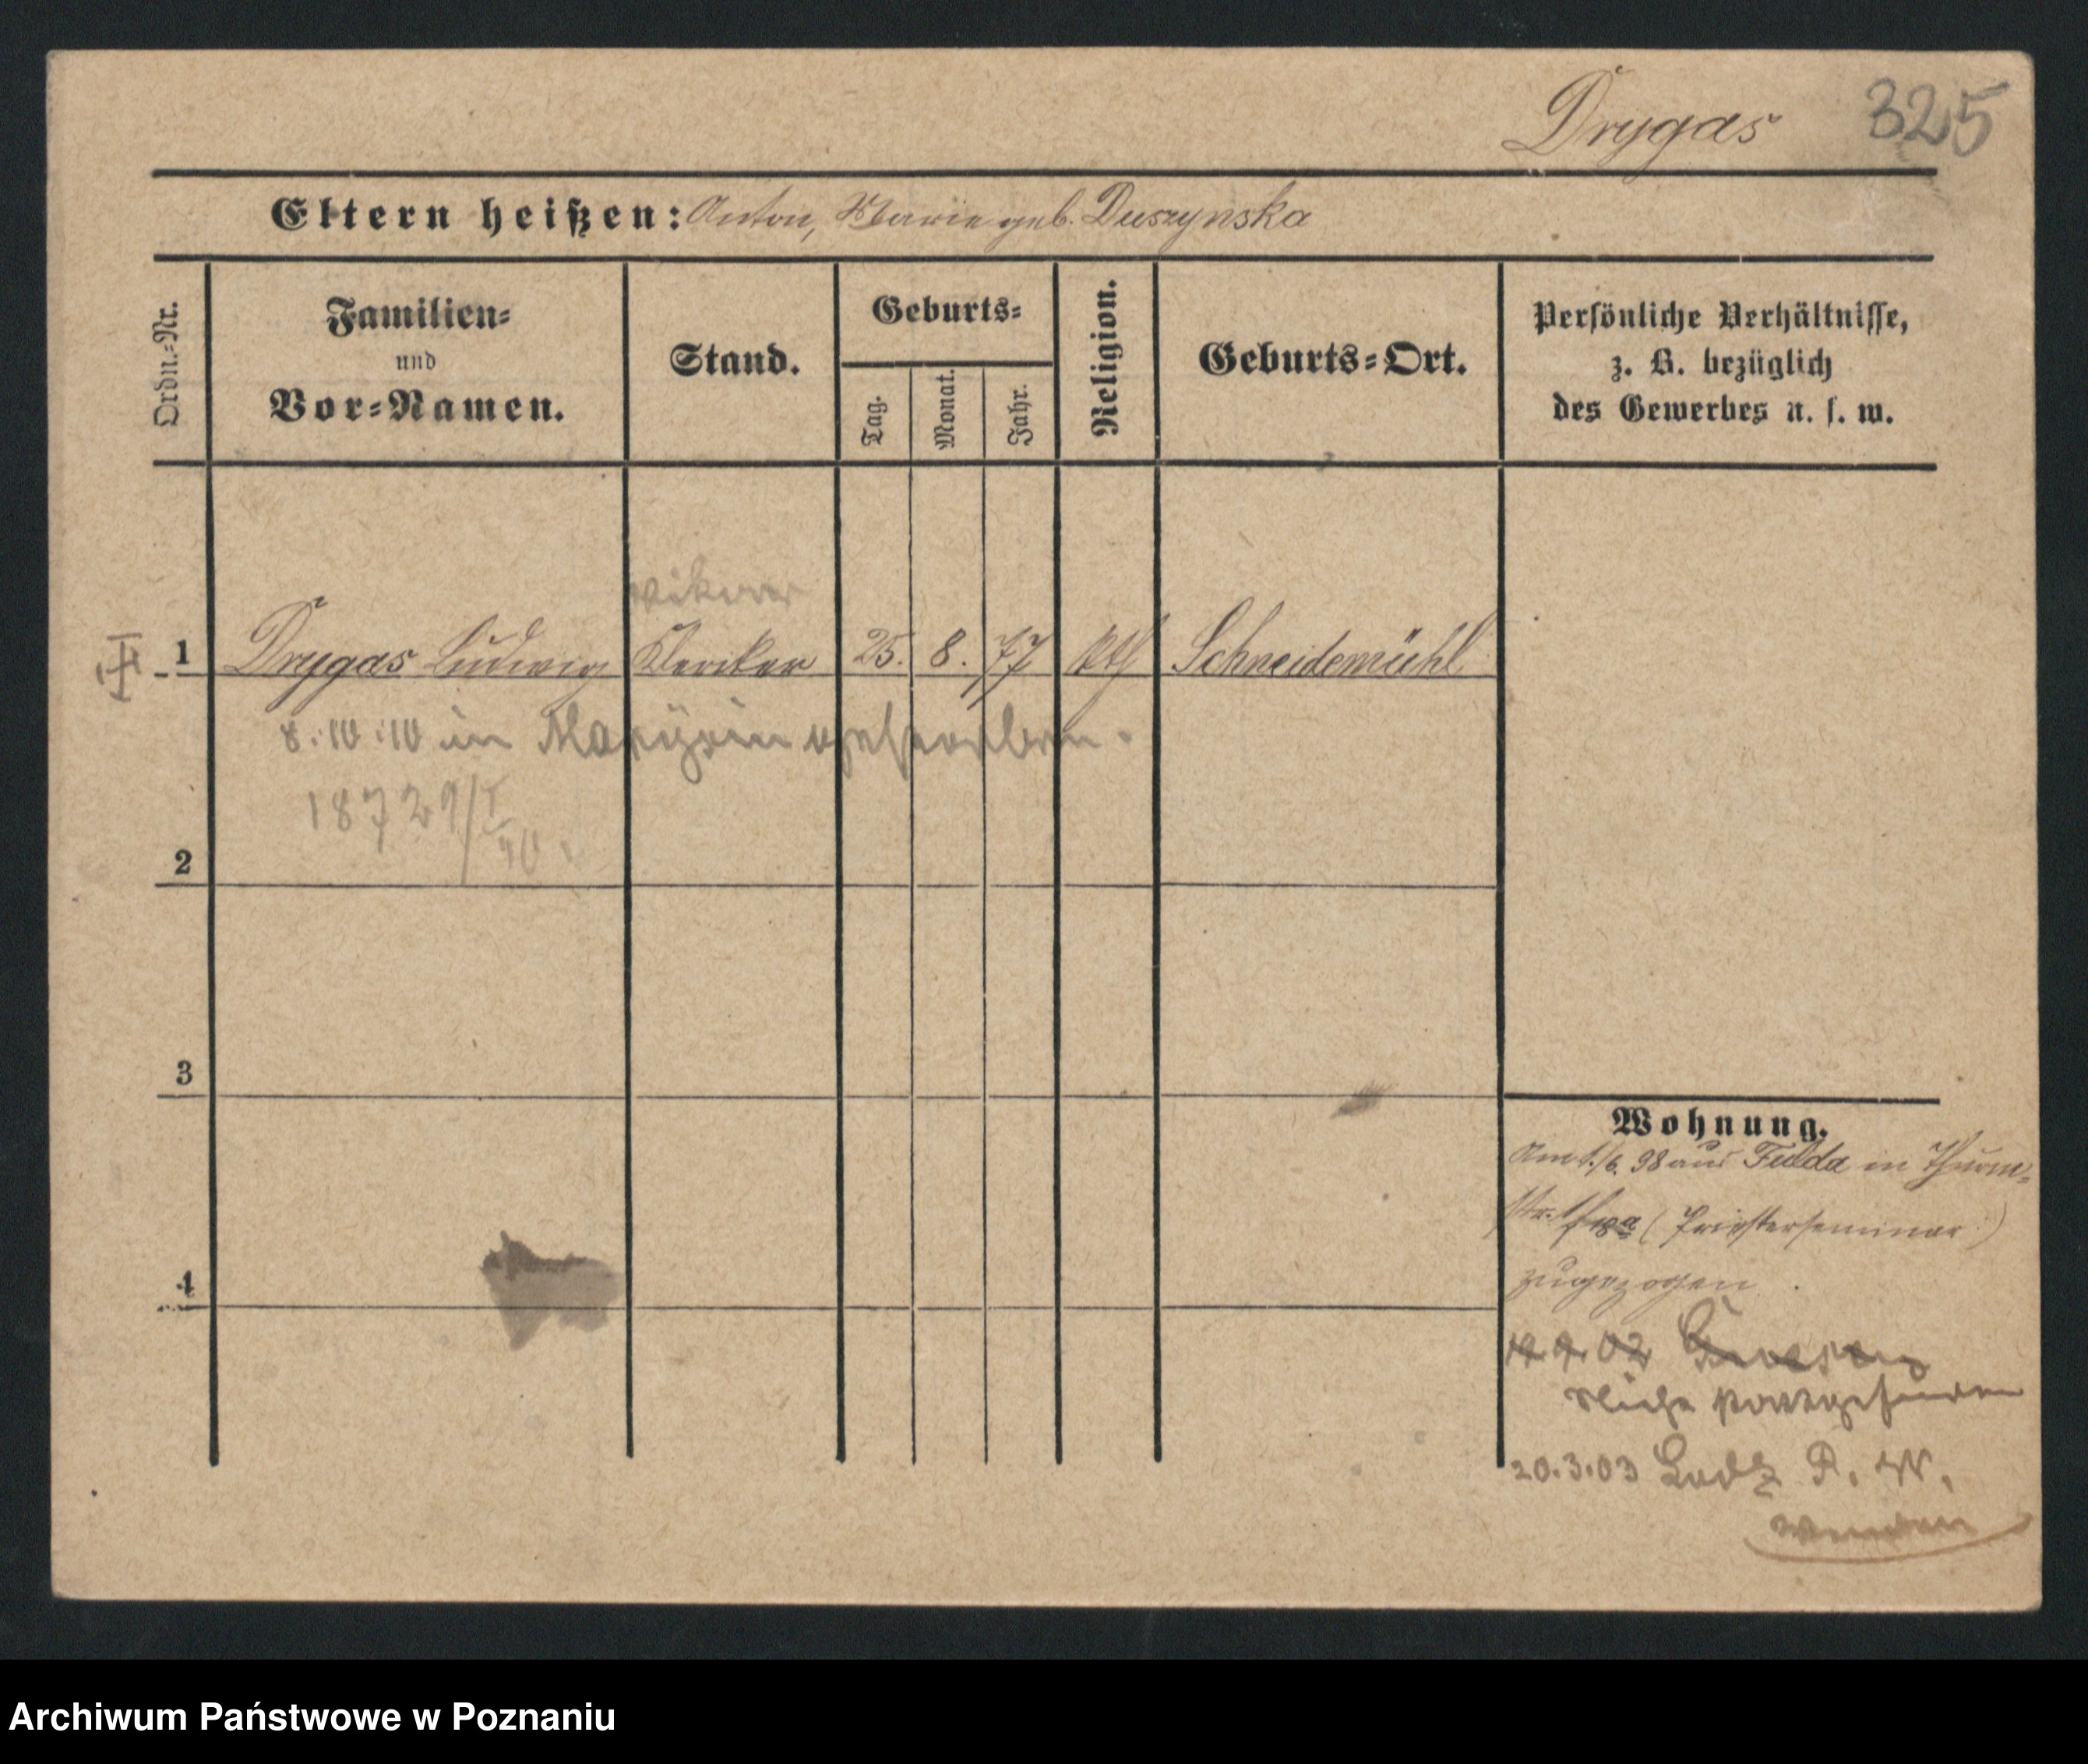 Drygas 325
Eltern heißen: Anton, Marie geb. Duszynska
Ordn.-Nr.
Familien-
und
Vor-Namen.
Stand.
Geburts-
Tag.
Monat.
Jahr.
Religion.
Geburts-Ort.
Persönliche Verhältnisse,
z. B. bezüglich
des Gewerbes u. s. w.
Vikar
1 Drygas Ludwig Kleriker 25. 8. 77 Kth Schneidemühl
8.10.10 in gestorben.
2
3
4
Wohnung.
Am 1./6. 98 aus Fulda in Thurm-
str. (Priesterseminar)
zugezogen
02
20.3.03 Lodz P. W.
wenden
Archiwum Państwowe w Poznaniu